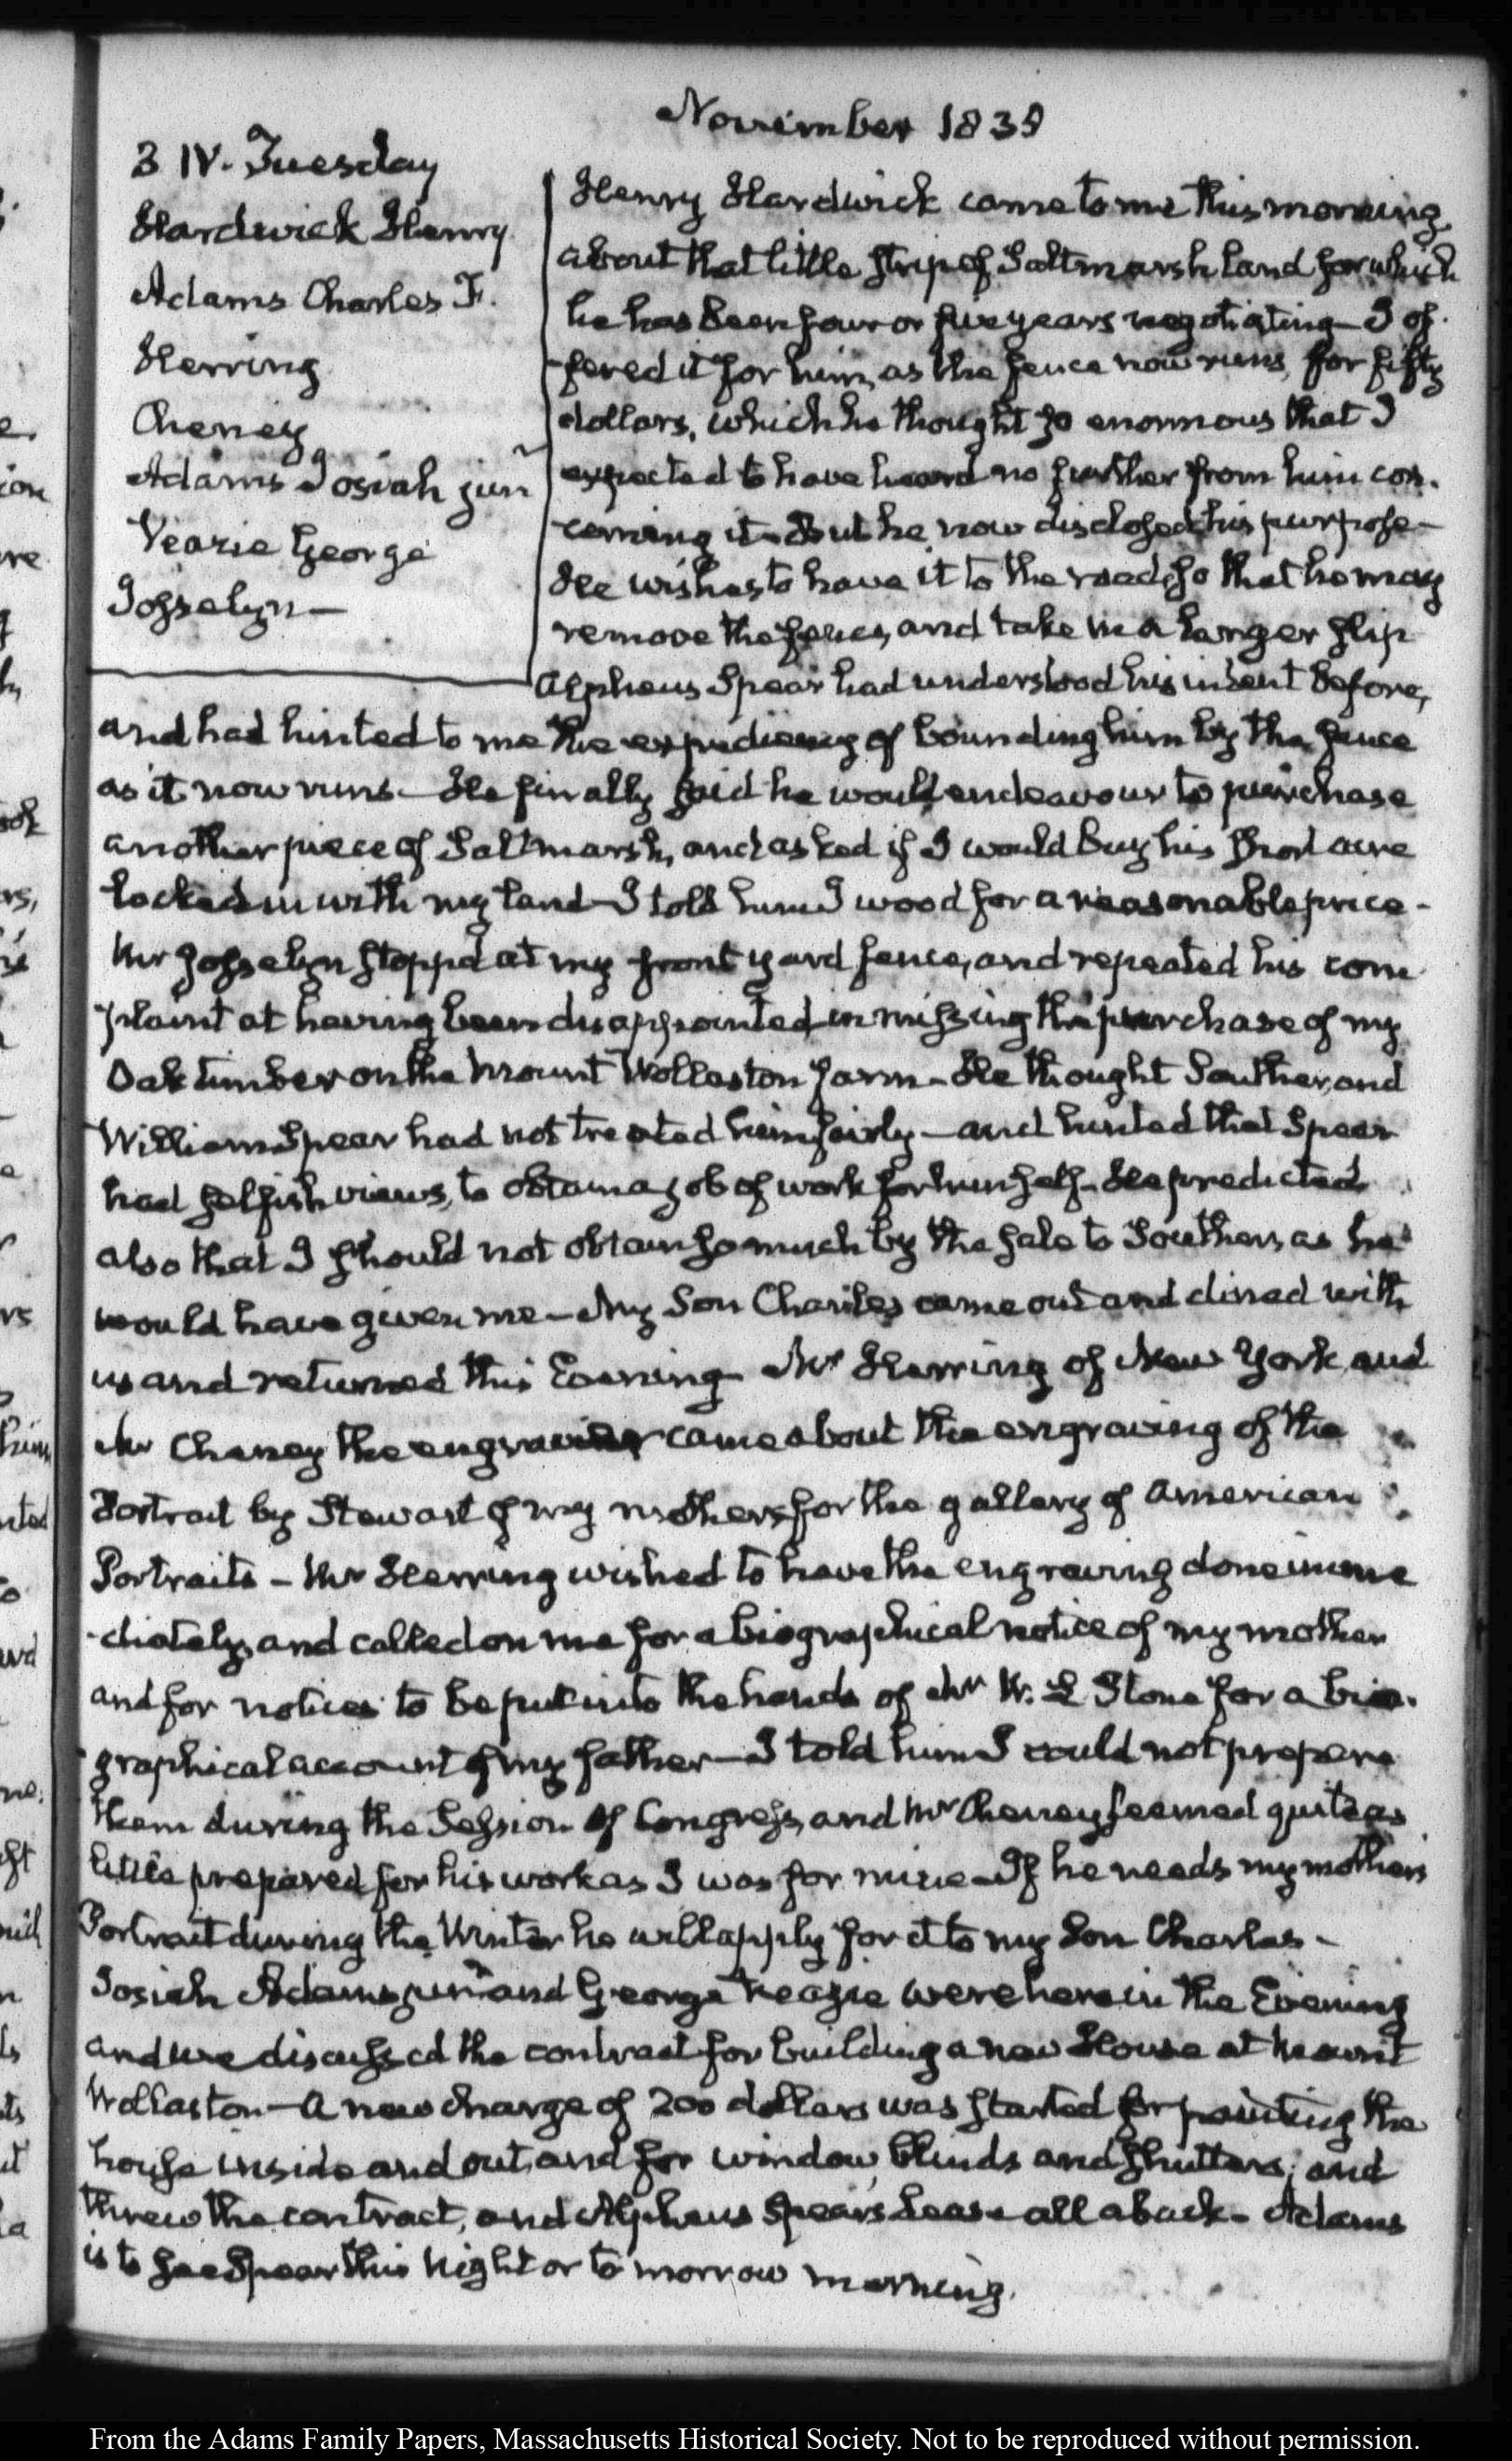 November 1835
3 IV. Tuesday
Hardwick Henry
Adams Charles F.
Herring
Cheney
Adams Josiah junr
Veazie George
Josselyn—
Henry Hardwick came to me this morning
about that little strip of Saltmarsh land for which
he has been four or five years negotiating— I of-
-fered it for him, as the fence now runs, for fifty
dollars, which he thought so enormous that I
expected to have heard no further from him con-
cerning it— But he now disclosed his purpose—
He wishes to have it to the road, so that he may
remove the fence, and take in a larger slip
Alpheus Spear had understood his intent before,
and had hinted to me the expediency of bounding him by the fence
as it now runs— He finally said he would endeavour to purchase
another piece of Saltmarsh, and asked if I would buy his acre
locked in with my land— I told him I wood for a reasonable price—
Mr Josselyn stopp'd at my front yard fence, and repeated his com
plaint at having been disappointed in missing the purchase of my
Oak timber on the Mount Wollaston farm— He thought Souther, and
William Spear had not treated him fairly— and hinted that Spear
had selfish views, to obtain a job of work for himself— He predicted
also that I should not obtain so much by the sale to Souther, as he
would have given me— My Son Charles came out and dined with
us and returned this Evening— Mr Herring of New York, and
Mr Cheney the engraver came about the engraving of the
Portrait by Stewart of my mother, for the gallery of American
Portraits— Mr Herring wished to have the engraving done imme
-diately, and called on me for a biographical notice of my mother
and for notices to be put into the hands of Mr W. L Stone for a bio-
graphical account of my father— I told him I could not prepare
them during the Session of Congress, and Mr Cheney seemed quite as
little prepared for his work as I was for mine— If he needs my mother's
Portrait during the Winter he will apply for it to my Son Charles—
Josiah Adams junr and George Veazie were here in the Evening
and we discussed the contract for building a new House at Mount
Wollaston— A new charge of 200 dollars was started for painting the
house inside and out, and for window blinds and shutters; and
threw the contract, and Alpheus Spear's Lease all aback— Adams
is to see Spear this Night or to morrow morning.
From the Adams Family Papers, Massachusetts Historical Society. Not to be reproduced without permission.